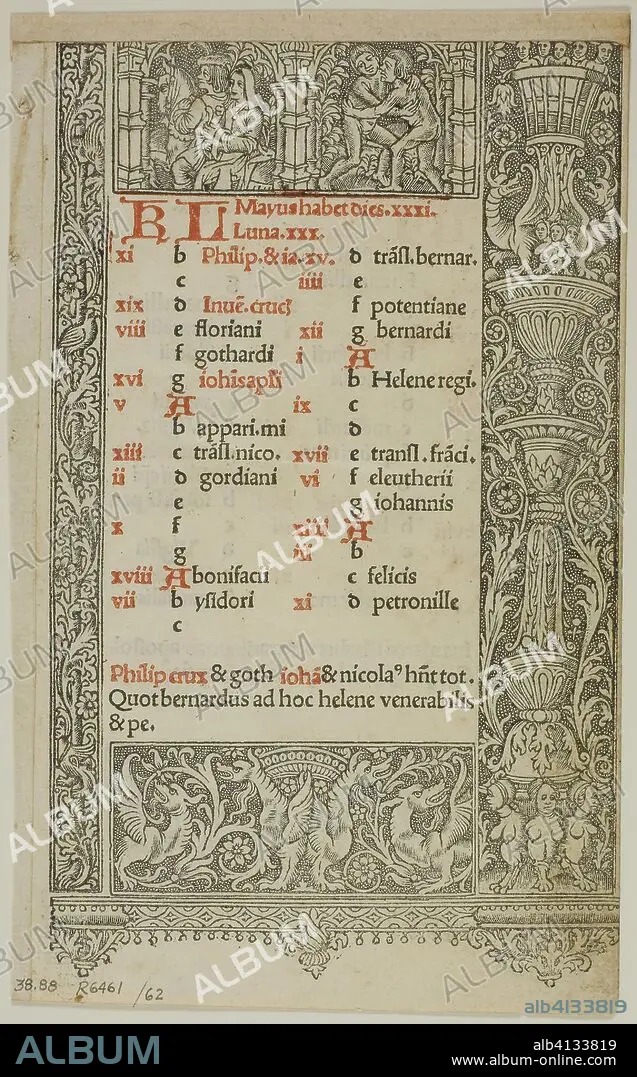 KL Mayus habet dies.xxxi.
Luna.xxx.
xi b Philip.&ia.xv.
c
xix d Inuē.crucꝭ
viii e floriani
f gothardi
xvi g iohīs apłi
v A
b appari.mi
xiii c trāsl.nico.
ii d gordiani
e
x f
g
xviii A bonifacii
vii b ysidori
c
d trāsl.bernar.
iiii e
f potentiane
xii g bernardi
i A
b Helene regi.
ix c
d
xvii e transl.frāci.
vi f eleutherii
g iohannis
xiiii A
b
c felicis
xi d petronille
Philip crux & goth iohā & nicolaꝰ hn̄t tot.
Quot bernardus ad hoc helene venerabilis
& pe.
38.88 R6461 /62
ALBUM
alb4133819
ALBUM
alb4133819
www.album-online.com